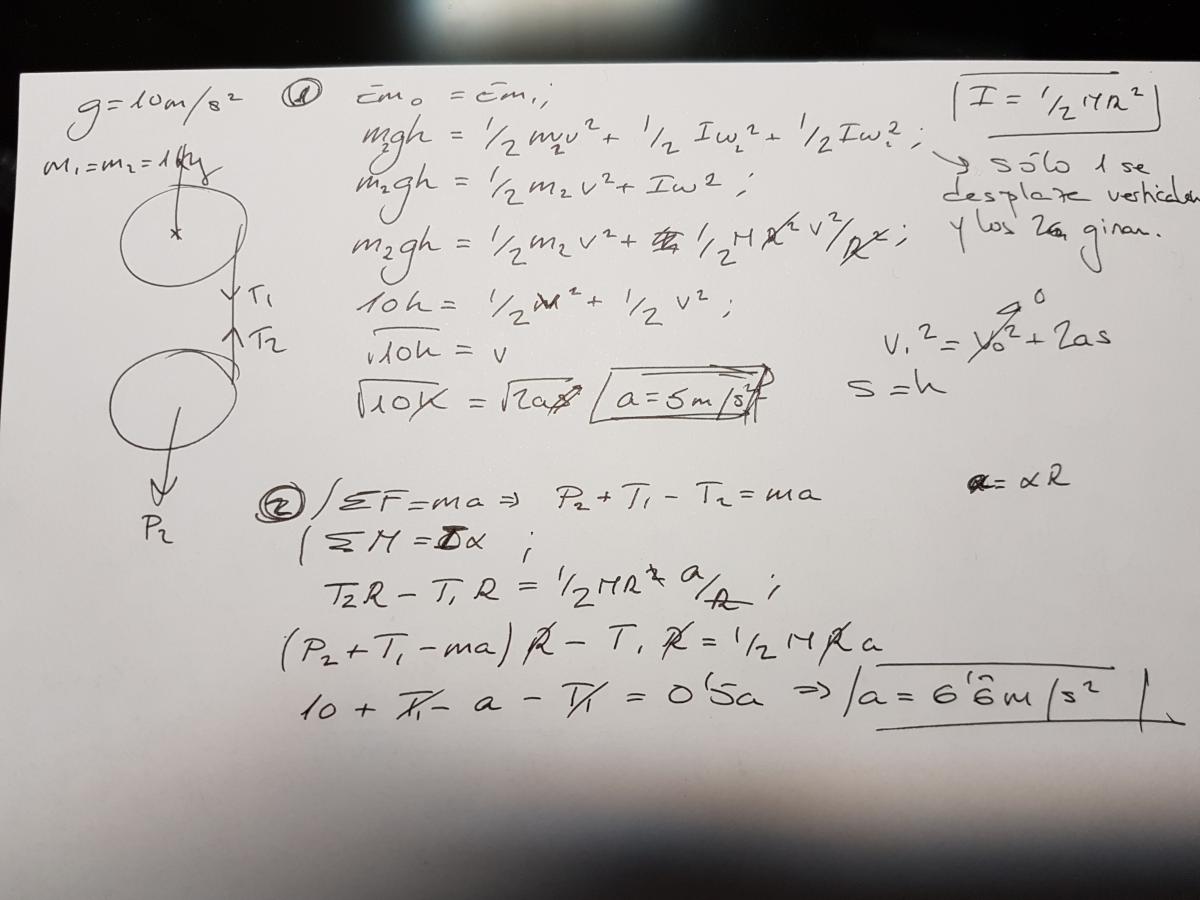 g = 10 m/s²
m₁ = m₂ = 1 kg
T₁
T₂
P₂
① Em₀ = Em₁;
m₂gh = 1/2 m₂v² + 1/2 Iω₂² + 1/2 Iω²;
m₂gh = 1/2 m₂v² + Iω²;
m₂gh = 1/2 m₂v² + 1/2 MR² v²/R²;
10h = 1/2 v² + 1/2 v²;
√10h = v
√10h = √2as a = 5 m/s²
I = 1/2 MR²
→ sólo 1 se
desplaza
y los 2 giran.
0
v₁² = v₀² + 2as
s = h
② ΣF = ma ⇒ P₂ + T₁ - T₂ = ma
a = αR
ΣM = Iα ;
T₂R - T₁R = 1/2 MR² a/R ;
(P₂ + T₁ - ma) R - T₁ R = 1/2 M R a
10 + T₁ - a - T₁ = 0'5a ⇒ a = 6'6̂ m/s²